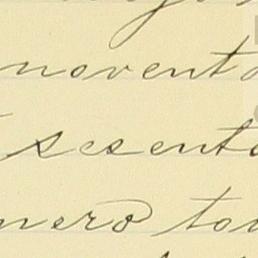 noventa
sesenta
nero to